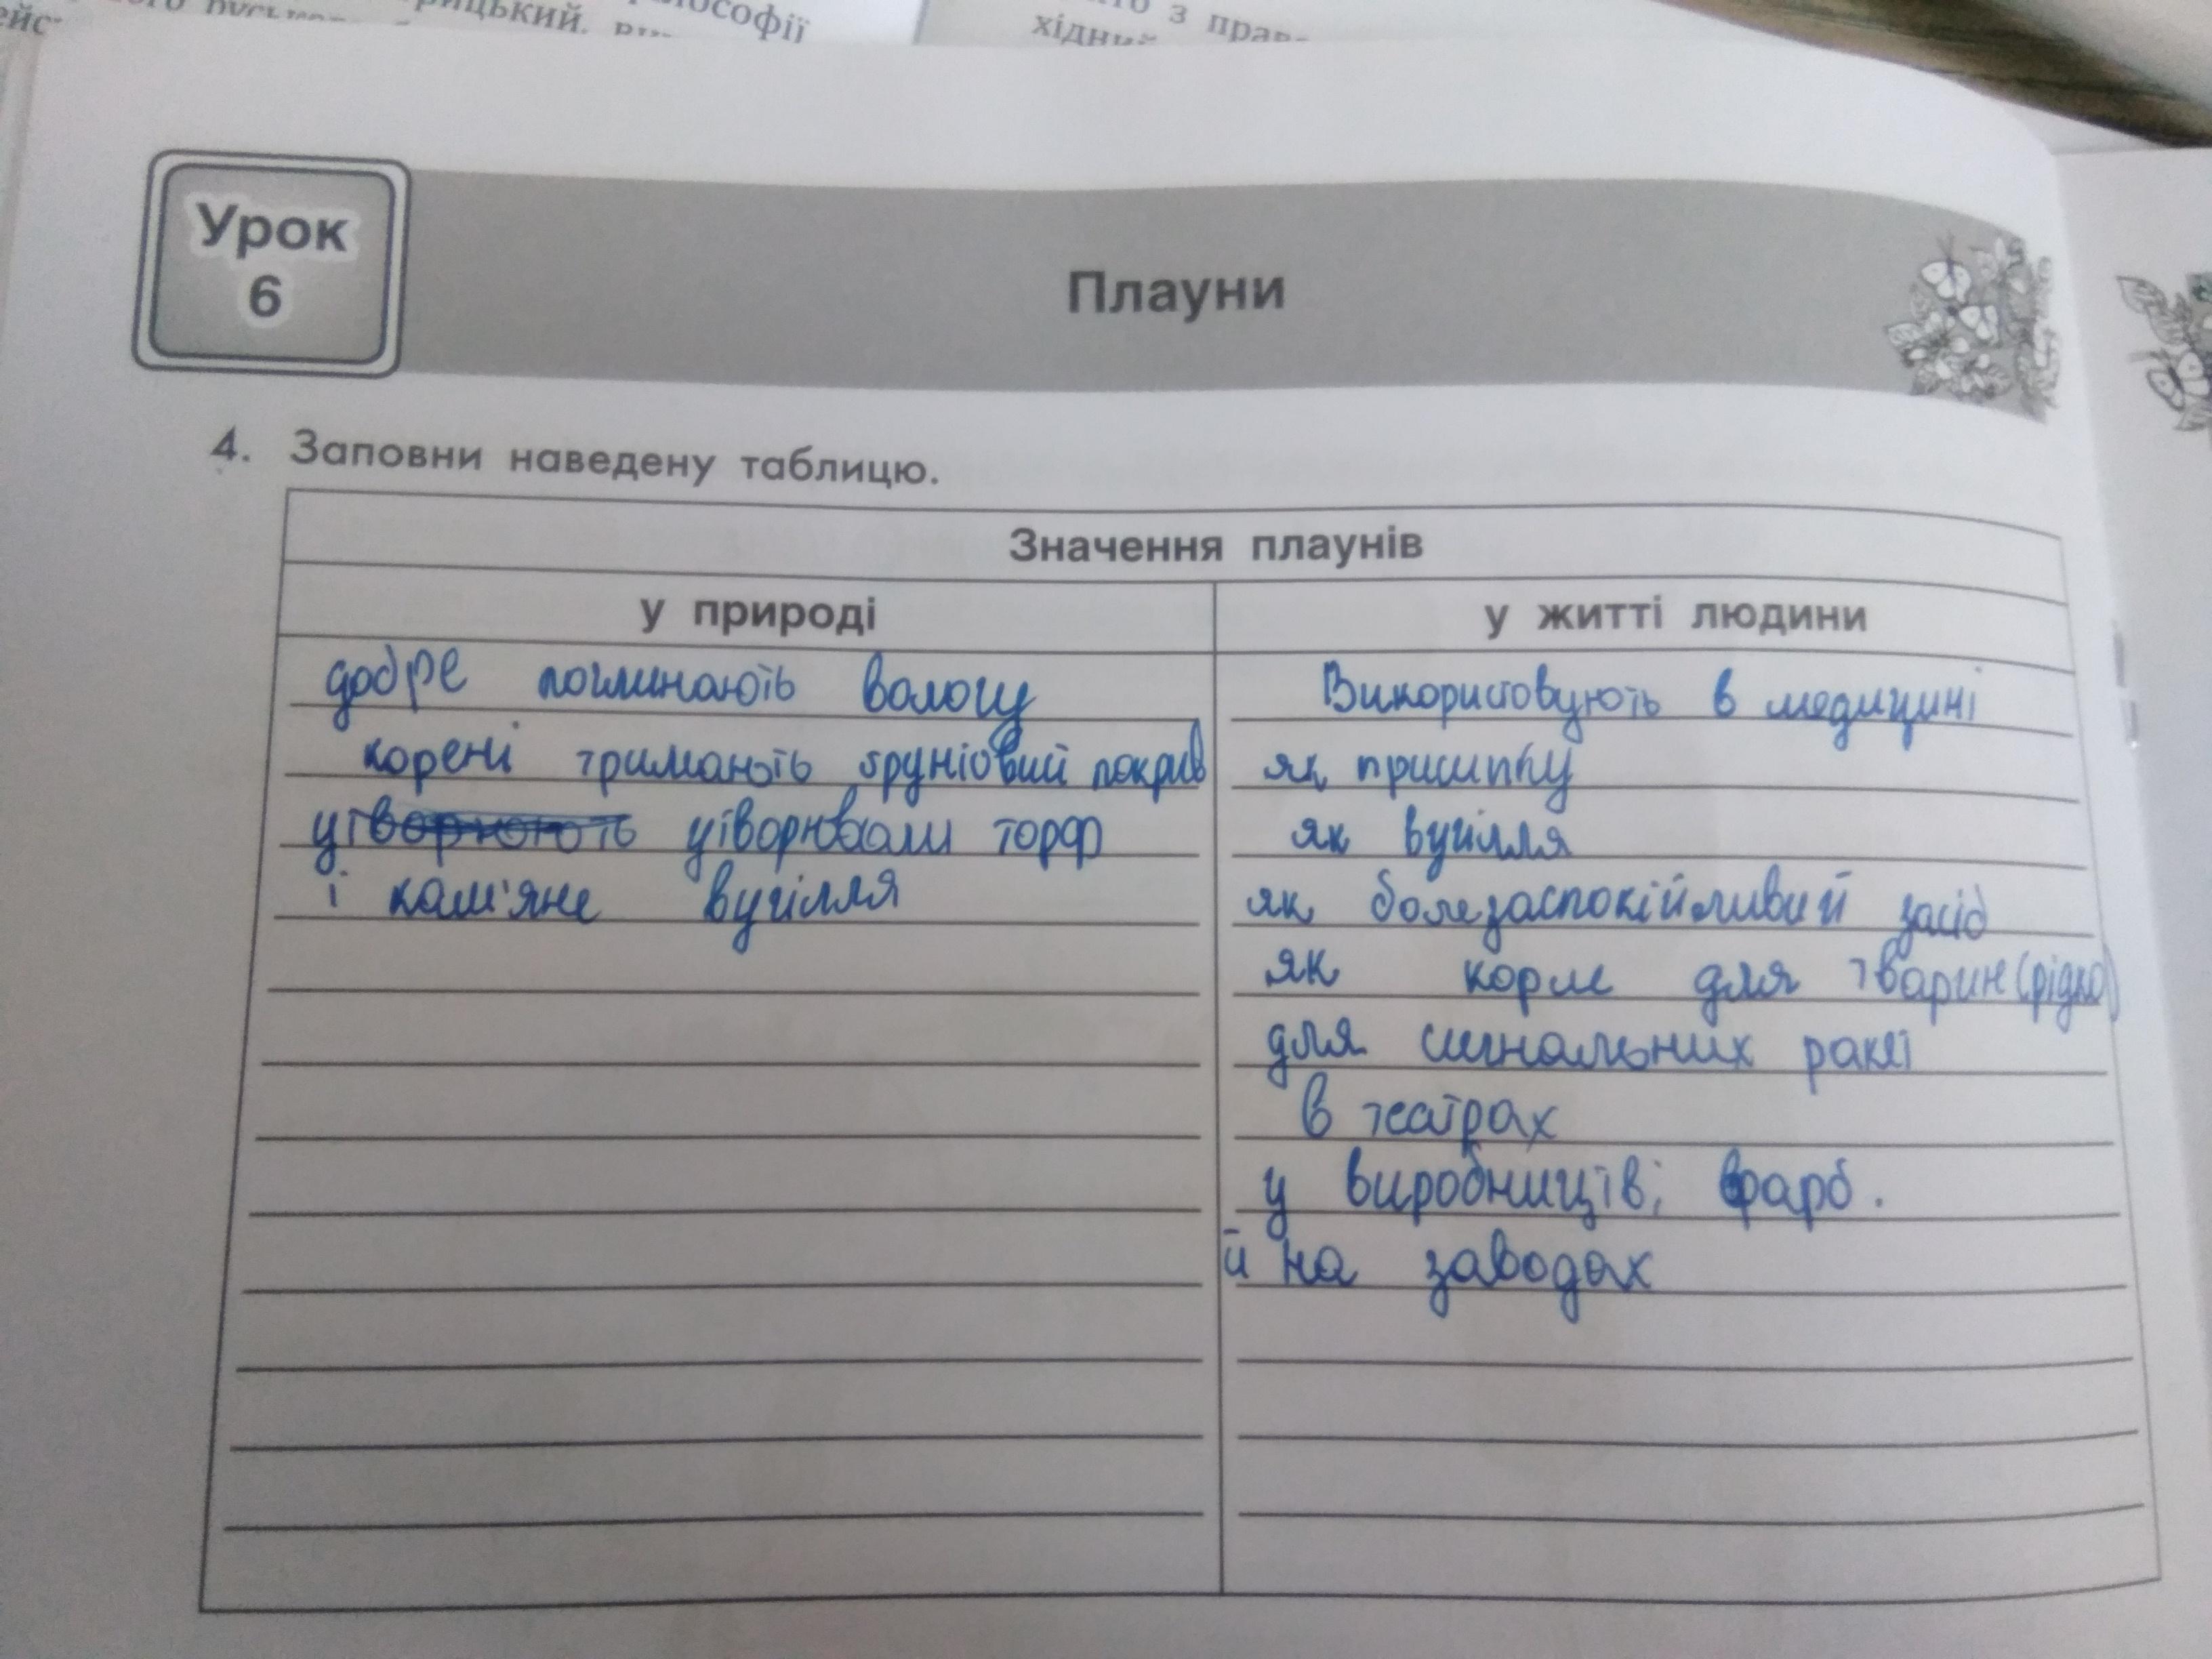 ософії
рицький.
з прав
хідний
Урок
6
Плауни
4. Заповни наведену таблицю.
Значення плаунів
у природі
у житті людини
добре поглинають вологу
корені тримають ґрунтовий покрив
утворюють утворювали торф
і кам'яне вугілля
Використовують в медицині
як присипку
як вугілля
як болезаспокійливий засіб
як корм для тварин (рідко)
для сигнальних ракет
в театрах
у виробництві фарб.
й на заводах